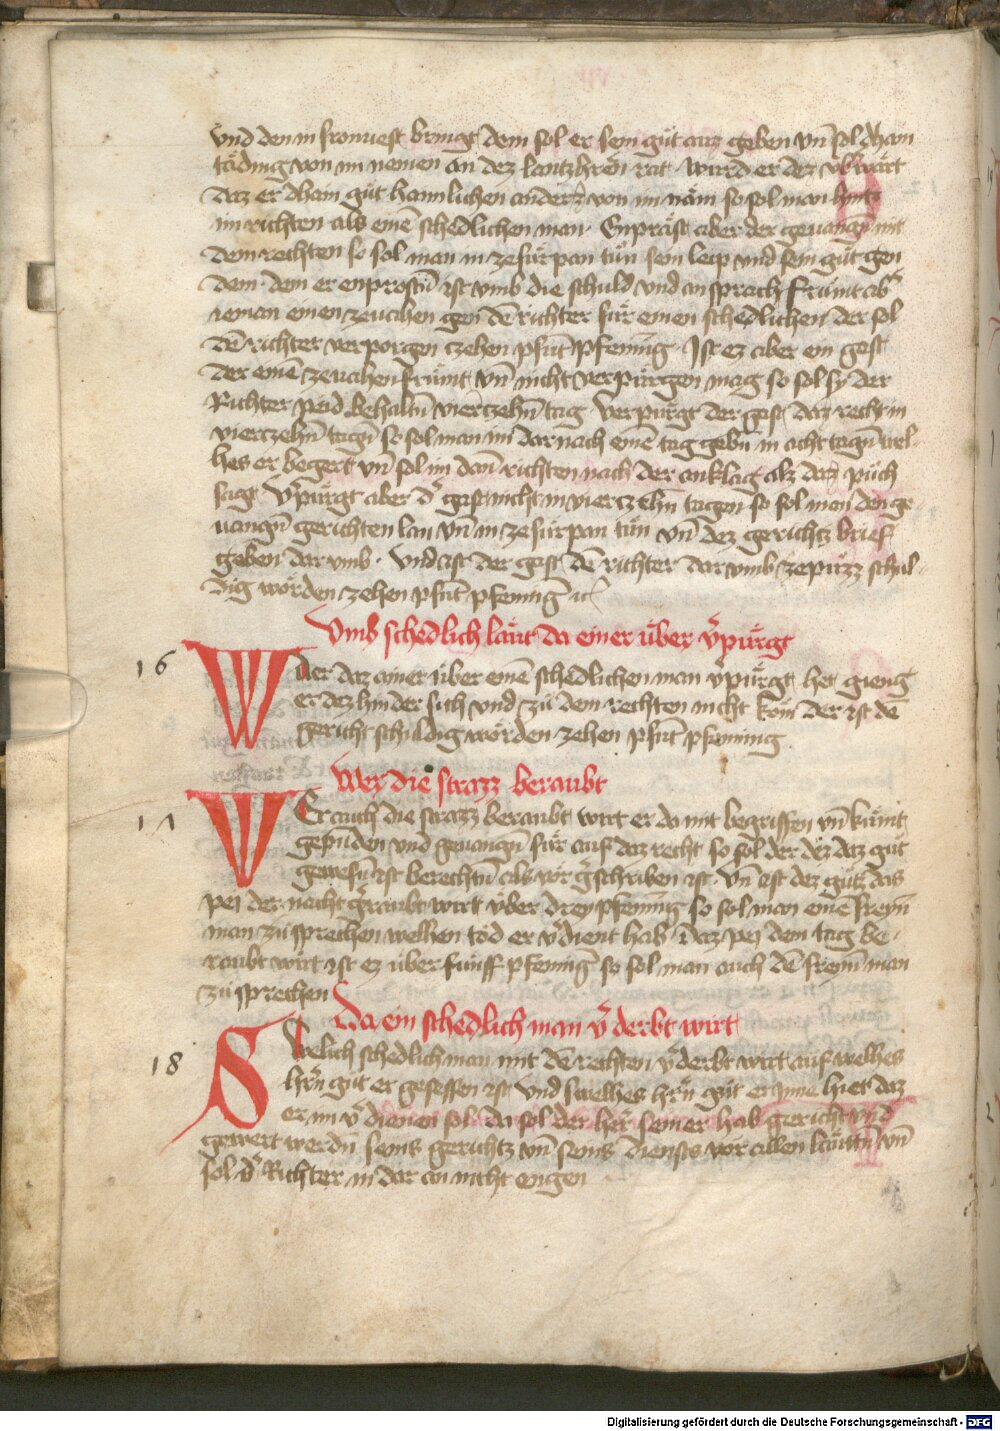 Vnd den in fronuest bringt dem sol er sein gut auz geben vn̄ sol dhain
täding von im nemen an dez lantzhren rat. wurd er dez vb̄wärt
daz er dhain gut haimlichen anderz von im näm so sol man hintz
im richten als einē schedlichen man. Enpräst aber der geuangn̄ mit
dem rechten so sol man in zefürpan tün sein leip vnd sein gut gen
dem. dem er enprostn̄ ist vmb die schuld vnd ansprach frümt ab̄
ieman einen zeuchen gen dē richter für einen schedlichen der sol
dē richter verporgen zehen pfūt pfennig. Ist ez aber ein gast
der einē zeuchen frümt vn̄ nicht verpürgen mag so sol sy der
Richter paid behaltn̄ viertzehn̄ tag verpürgt der gast daz recht in
viertzehn̄ tagn̄ so sol man im darnach einē tag gebn̄ in acht tagn̄ wel
hes er begert vn̄ sol im dan̄ richten nach der anklag alz daz puch
sagt v̄pürgt aber d̄ gast nicht in viertzehn̄ tagen so sol man den ge
uangn̄ gerichten lan vn̄ in zefürpan tün vn̄ dez gerichtz brief
geben dar vmb. Vnd ist der gast dē richter dar vmb ze puzz schul
dig worden zehen pfūt pfennig
Vmb schedlich läut da einer über v̄pürgt
16 Wder daz ainer über einē schedlichen man v̄pürgt het gieng
er dez hinder sich vnd zu dem rechten nicht köm der ist dē
gericht schuldig worden zehen pfūt pfenning
Wer die strazz beraubt
17 WEr auch die strazz beraubt wirt er da mit begriffen vn̄ kümt
gepunden vnd geuangn̄ für auf daz recht so sol der dez daz gut
gewesn̄ ist berechtn̄ als vor gschriben ist. vn̄ ist dez gutz das
pei der nacht geraubt wirt über drey pfenning so sol man einē freyn̄
man zu sprechen welhen tod er v̄dient hab. Daz pei dem tag be
raubt wirt ist ez über fünff pfening so sol man auch dē freyn̄ man
zu sprechen
Da ein schedlich man v̄derbt wirt
18 SWelich schedlich man mit dē rechten v̄derbt wirt auf welhes
hr̄n gut er gesessen ist vnd swelhes hr̄n gut er inne hiet daz
er im v̄dienen sol da sol der her̄ seiner hab gericht vnd
gewert werdn̄ seins gerichtz vn̄ seins diensts vor allen läuttn̄ vn̄
sol d̄ Richter in dar an nicht engen
Digitalisierung gefördert durch die Deutsche Forschungsgemeinschaft - DFG